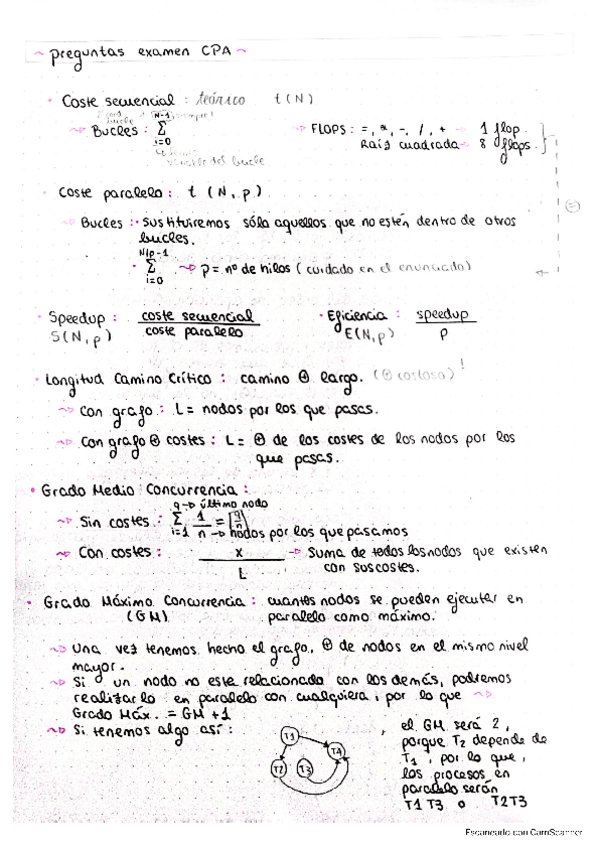 ~ preguntas examen CPA ~
· Coste secuencial : teórico t(N)
Bucles : N-1 Σ i=0
variable del bucle
FLOPS : =, *, -, /, + → 1 flop.
Raíz cuadrada → 8 flops.
· Coste paralelo : t (N, p)
Bucles : · Sustituiremos sólo aquellos que no estén dentro de otros
bucles.
· N/p-1 Σ i=0 p = nº de hilos (cuidado en el enunciado)
· Speedup : coste secuencial / coste paralelo
S(N,p)
· Eficiencia : speedup / p
E(N,p)
· Longitud Camino Crítico : camino ⊕ largo. (⊕ costoso)!
Con grafo : L = nodos por los que pasas.
Con grafo ⊕ costes : L = ⊕ de los costes de los nodos por los
que pasas.
· Grado Medio Concurrencia :
q → último nodo
Sin costes : Σ i=1 1/n = [q/n]
n → nodos por los que pasamos
Con costes : x / L → Suma de todos los nodos que existen
con sus costes.
· Grado Máximo Concurrencia : cuantos nodos se pueden ejecutar en
(GM) paralelo como máximo.
Una vez tenemos hecho el grafo, ⊕ de nodos en el mismo nivel
mayor.
Si un nodo no este relacionado con los demás, podremos
realizarlo en paralelo con cualquiera, por lo que
Grado Máx. = GM + 1
Si tenemos algo así :
T1
T4
T2 T3
, el GM será 2,
porque T2 depende de
T1, por lo que,
los procesos en
paralelo serán
T1 T3 o T2 T3
Escaneado con CamScanner